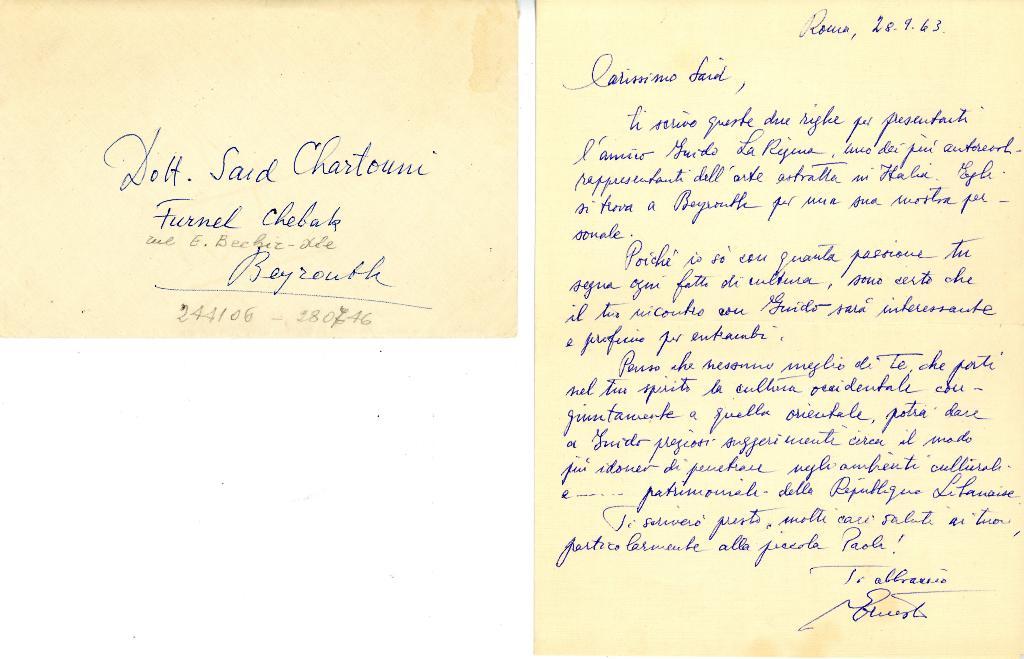 Dott. Said Chartouni
Furnel Chebak
rue E. Bechir-
Beyrouth
244106 - 280746
Roma, 28.9.63.
Carissimo Said,
ti scrivo queste due righe per presentarti
l'amico Guido La Regina, uno dei più autorevoli
rappresentanti dell'arte astratta in Italia. Egli
si trova a Beyrouth per una sua mostra per-
sonale.
Poichè io sò con quanta passione tu
segua ogni fatto di cultura, sono certo che
il tuo incontro con Guido sarà interessante
e proficuo per entrambi.
Penso che nessuno meglio di Te, che porti
nel tuo spirito la cultura occidentale con-
giuntamente a quella orientale, potrà dare
a Guido preziosi suggerimenti circa il modo
più idoneo di penetrare negli ambienti culturali
e ----- patrimoniali della République Libanaise.
Ti scriverò presto, molti cari saluti ai tuoi,
particolarmente alla piccola Paola!
Ti abbraccio
Ernesto